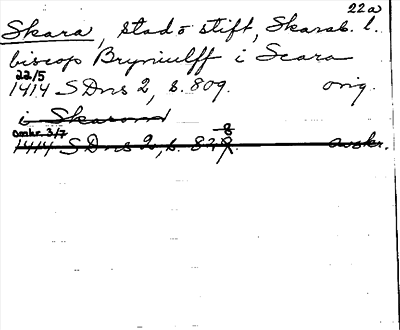 22a
Skara, stad o stift, Skarab. l.
biscop Bryniulff i Scara
22/5
1414 SDns 2, s. 809. orig.
i Skarom
omkr. 3/7
8
1414 SDns 2, s. 82 avskr.